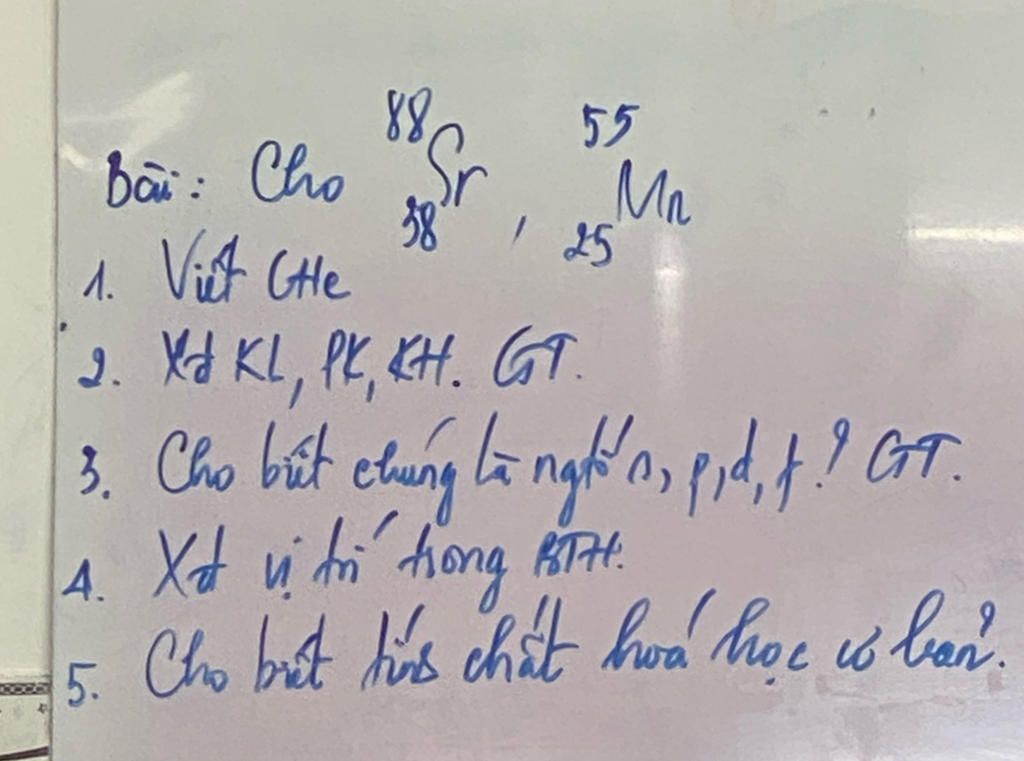 Bài: Cho ⁸⁸₃₈Sr, ⁵⁵₂₅Mn
1. Viết CHe
2. Xđ KL, PK, KH. GT.
3. Cho biết chúng là ngtố s, p, d, f? GT.
4. Xđ vị trí trong BTH.
5. Cho biết tính chất hoá học cơ bản?